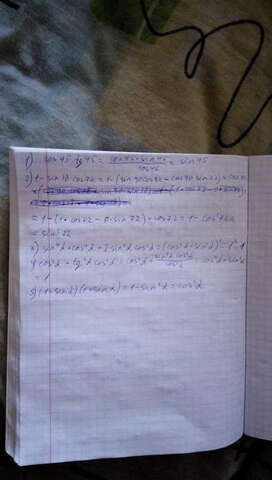 1) cos 45 · tg 45 = cos 45 · sin 45 / cos 45 = sin 45
2) 1 - sin 18 cos 72 = 1 - (sin 90 cos 72 - cos 90 sin 72) × cos 72
= 1 - (1 · cos 72 - 0 · sin 72) · cos 72 = 1 - cos² 72
= sin² 72
3) sin⁴α + cos⁴α + 2 sin²α cos²α = (cos²α + sin²α)² = 1² = 1
4) cos²α + tg²α cos²α = cos²α + sin²α cos²α / cos²α = cos²α + sin²α
= 1
5) (1 - sin α)(1 + sin α) = 1 - sin²α = cos²α